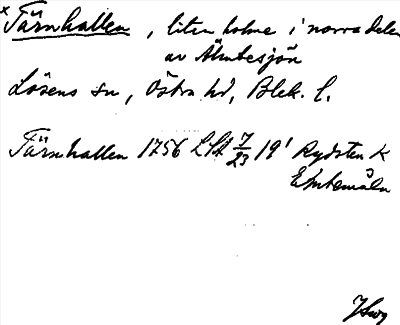 x Tärnhallen, liten holme i norra delen
av Älmtesjön
Lösens sn, Östra hd, Blek. l.
Tärnhallen 1756 LSA 7/23 19' Rydsten K
Elmtamåla